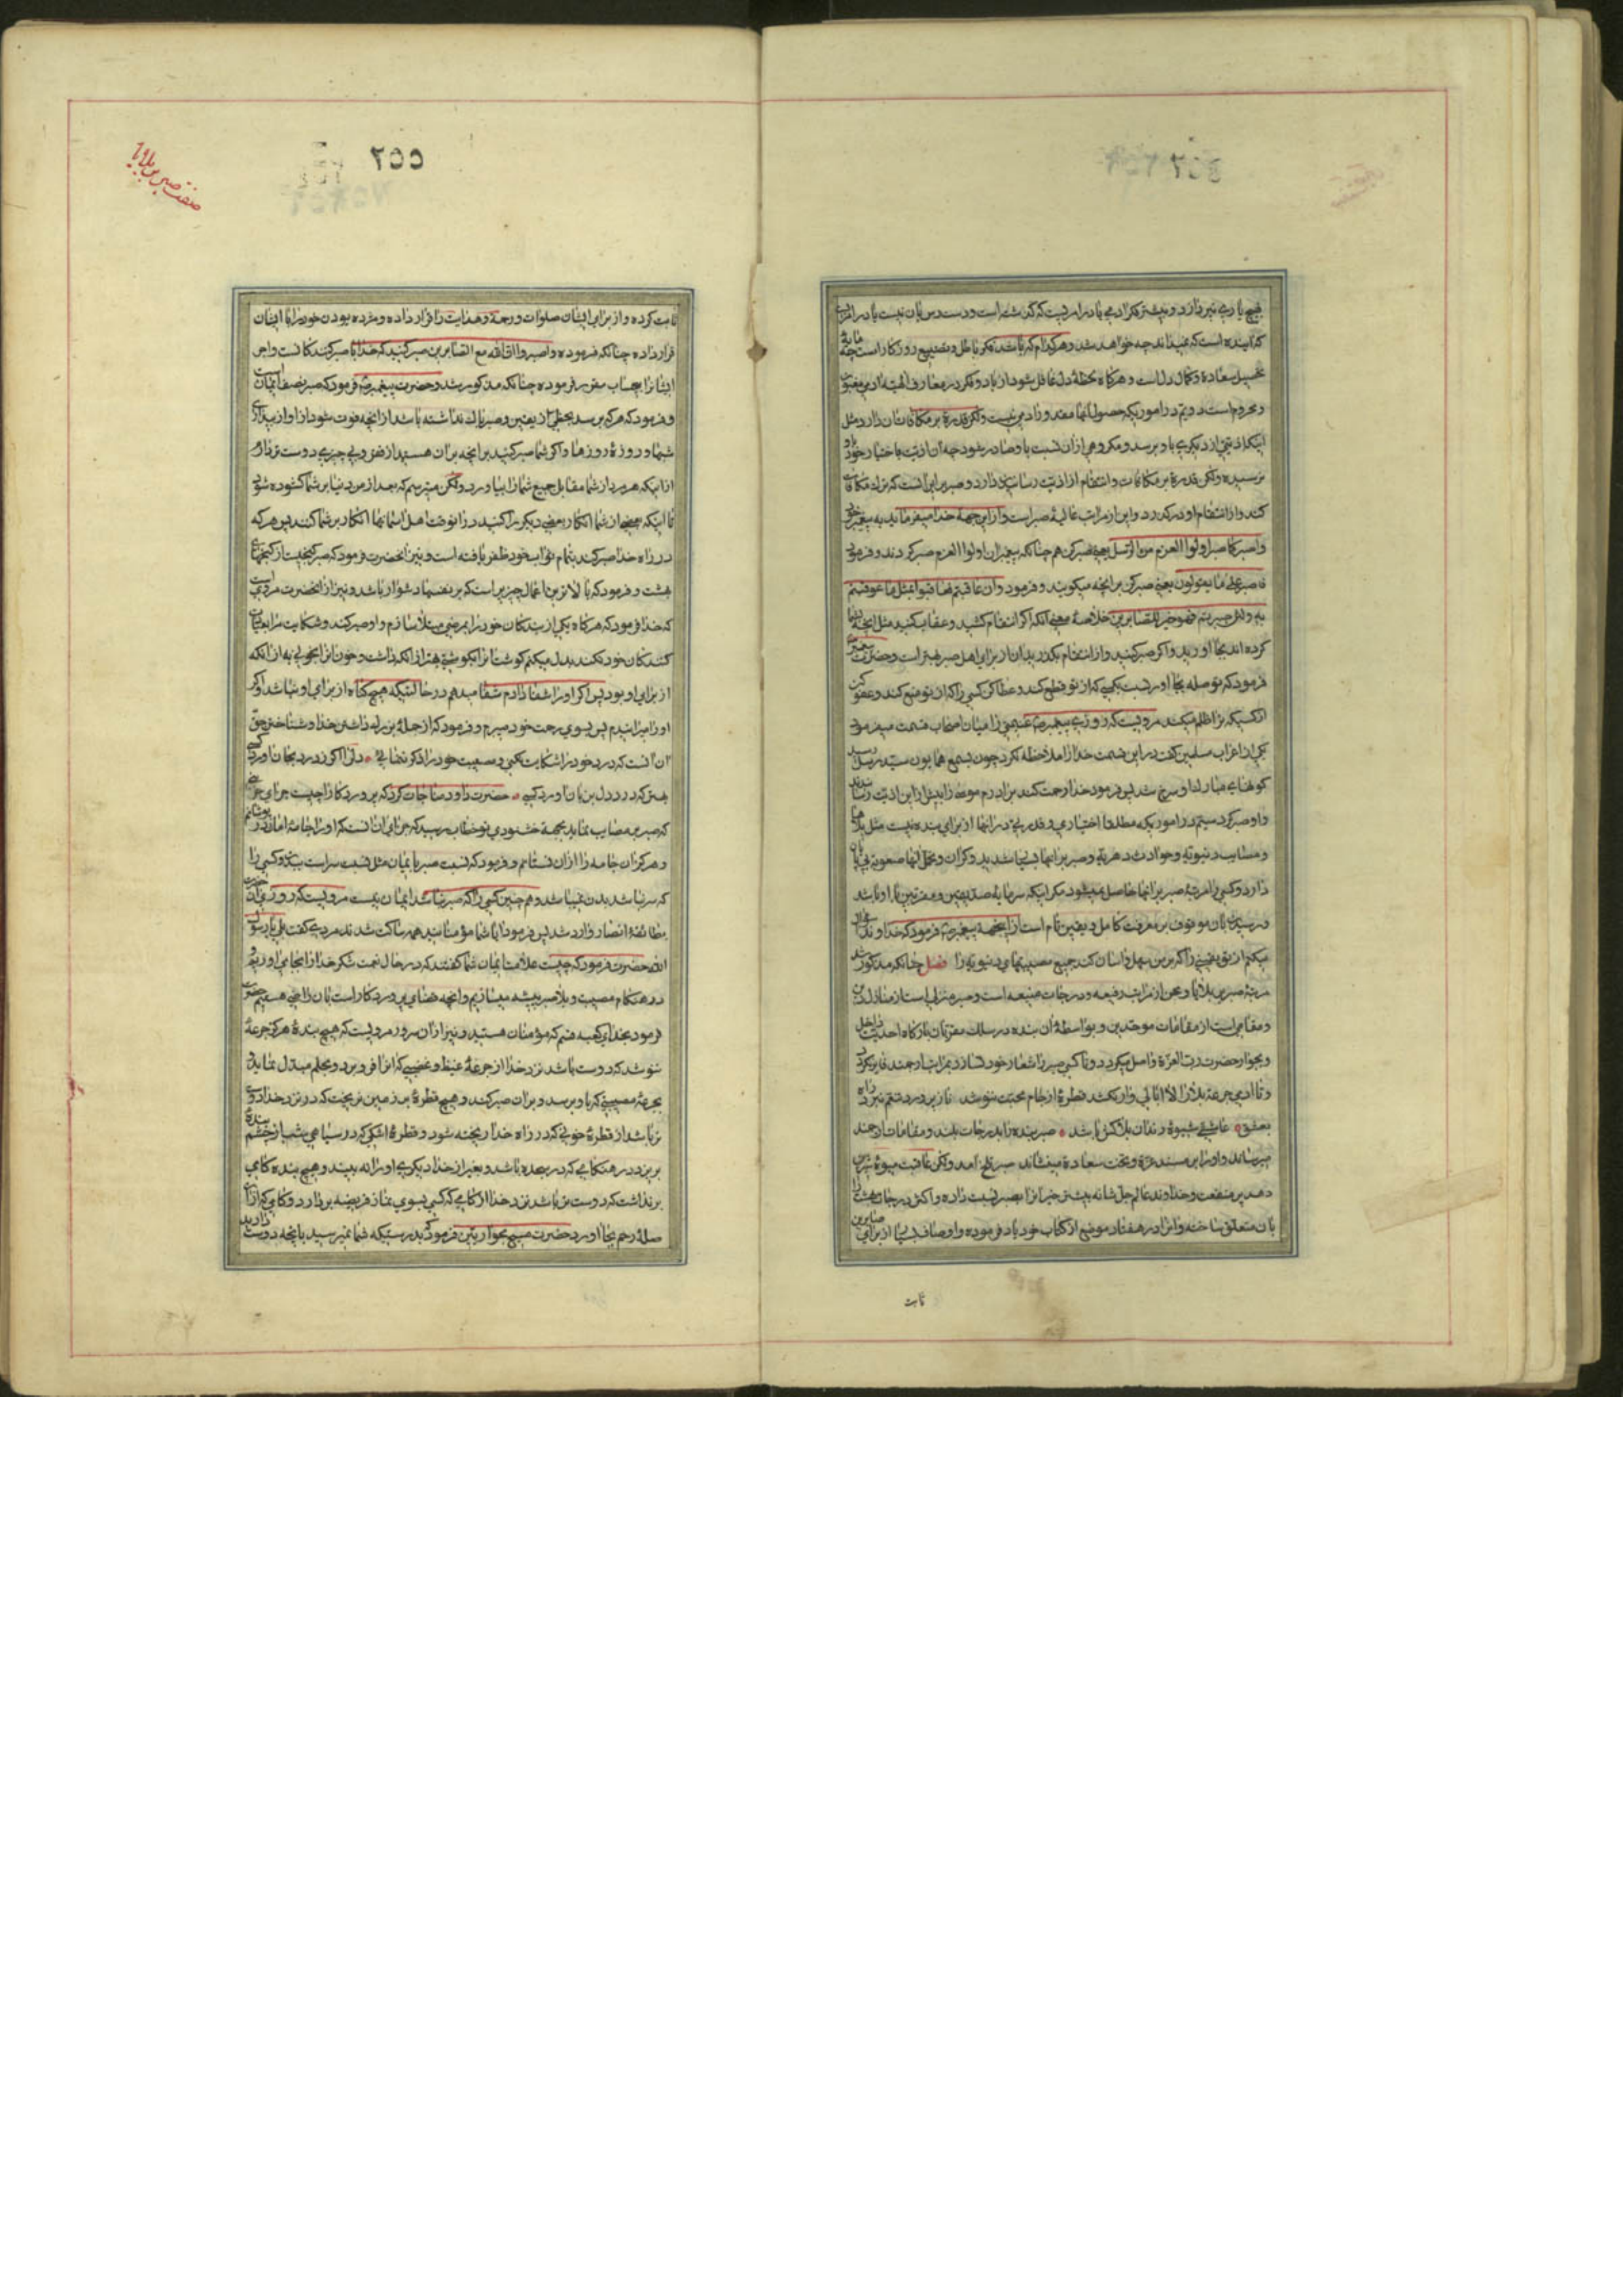 بهیچ یادی نپردازد و بیشتر فکر آدمی یا در امریست که گذشته است و دسترس بآن نیست یا در امری
که آینده است که نمیداند چه خواهد شد و هر کدام که باشد فکر باطل و تضییع روزگار است چه مایه
تحصیل سعادة و کمال دل است و هرگاه لحظهٔ دل غافل شود از یاد و فکر در معارف الهیه آدمی مغبون
و محروم است دویم در اموریکه حصول آنها مقدور آدمی نیست ولکن قدرة بر مکافات آن دارد مثل
اینکه اذیتی از دیگری باو برسد و مکروهی از آن نسبت باو صادر شود چه آن اذیت باختیار خود او
نرسیده ولکن قدرة بر مکافات و انتقام از اذیت رسانیدن دارد و صبر بر این است که ترک مکافات
کند و از انتقام او درگذرد و این از مراتب عالیهٔ صبر است و از این جهة خدا میفرماید به پیغمبر خود
واصبر کما صبر اولوا العزم من الرسل یعنی صبر کن همچنانکه پیغمبران اولوا العزم صبر کردند و فرمود
فاصبر علی ما یقولون یعنی صبر کن بر آنچه میگویند و فرمود وان عاقبتم فعاقبوا بمثل ما عوقبتم
به ولئن صبرتم فهو خیر للصابرین خلاصهٔ معنی آنکه اگر انتقام کشید و عقاب کنید مثل آنچه بشما
کرده اند بجا آورید و اگر صبر کنید و از انتقام بگذرید آن از برای اهل صبر بهتر است و حضرت پیغمبر
فرمود که تو صله بجا آور نسبت بکسی که از تو قطع کند و عطا کن کسی را که از تو منع کند و عفو کن
از کسیکه بر تو ظلم میکند مرویست که روزی پیغمبر ص غنیمتی را میان اصحاب قسمت میفرمود
یکی از اعراب مسلمین گفت در این قسمت خدا را ملاحظه نکرد چون بسمع همایون سید رسل رسید
گونهای مبارک او سرخ شد پس فرمود خدا رحمت کند برادرم موسی را بیش از این اذیت رسانیدند
و او صبر کرد سیم در اموریکه مطلقا اختیاری و قدرتی در آنها از برای بنده نیست مثل بلاها
و مصایب دنیویه و حوادث دهریه و صبر بر آنها بسیار شدید و گران و تحمل آنها صعوبة بی پایان
دارد و کسی را مرتبهٔ صبر بر آنها حاصل نمیشود مگر اینکه سرمایهٔ صدیقین و مقربین با او باشد
و رسیدن بآن موقوف بر معرفت کامل و یقین تام است از اینجهة پیغمبر ص فرمود که خداوندا سؤال
میکنم از تو یقینی را که بر من سهل و آسان کند جمیع مصیبتهای دنیویه را فصل چنانکه مذکور شد
مرتبهٔ صبر بر بلایا و محن از مراتب رفیعه و درجات منیعه است و صبر منزلی است از منازل دین
و مقامی است از مقامات موحدین و بواسطهٔ آن بنده در سلک مقربان بارگاه احدیت داخل
و بجوار حضرت رب العزة واصل میگردد و تا کسی صبر را شعار خود نسازد بمراتب ارجمند فایز نگردد
و تا آدمی جرعهٔ بلا را لاابالی وار نکشد قطرهٔ از جام محبت ننوشد ناز پرورد تنعم نبرد راه
بعشق عاشقی شیوهٔ رندان بلاکش باشد صبر بنده را بدرجات بلند و مقامات ارجمند
میرساند و او را بر مسند عزة و تخت سعادة مینشاند صبر تلخ آمد ولکن عاقبت میوهٔ شیرین
دهد پر منفعت و خداوند عالم جل شانه بیشتر خیرات را بصبر نسبت داده و اکثر درجات بهشت را
بآن متعلق ساخته و آن را در هفتاد موضع از کتاب خود یاد فرموده و اوصاف بسیار از برای صابرین
ثابت
صفت صبر بر بلایا
٢٥٥
ثابت کرده و از برای ایشان صلوات و رحمة و هدایت را قرار داده و مژده بودن خود را با ایشان
قرار داده چنانکه فرموده واصبروا ان الله مع الصابرین صبر کنید که خدا با صبر کنندگانست و اجر
ایشان را بحساب مقرر فرموده چنانکه مذکور شد و حضرت پیغمبر ص فرمود که صبر نصف ایمان است
و فرمود که هر که برسد بحظی از یقین و صبر باک نداشته باشد از آنچه فوت شود از او از بیداری
شبها و روزهٔ روزها و اگر شما صبر کنید بر آنچه بر آن هستید از فقر و بی چیزی دوست تر دارم
از اینکه هر یک از شما مقابل جمیع شما را بیاورد ولکن میترسم که بعد از من دنیا بر شما گشوده شود
تا اینکه بعضی از شما انکار بعضی دیگر را کنید در آنوقت اهل آسمانها انکار بر شما کنند پس هر که
در راه خدا صبر کند بتمام ثواب خود ظفر یافته است و نیز آنحضرت فرمود که صبر گنجیست از گنجهای
بهشت و فرمود که بالاترین اعمال چیزیست که بر نفسها دشوار باشد و نیز از آنحضرت مرویست
که خدا فرمود که هرگاه یکی از بندگان خود را بمرضی مبتلا سازم و او صبر کند و شکایت مرا بعیادت
کنندگان خود نکند بدل میکنم گوشت او را بگوشتی بهتر از آنکه داشت و خون او را بخونی به از آنکه
از برای او بود پس اگر او را شفا دادم شفا میدهم در حالتیکه هیچ گناه از برای او نباشد و اگر
او را میرانیدم پس بسوی رحمت خود میبرم و فرمود که از جملهٔ بزرگ داشتن خدا و شناختن حق
او آنست که درد خود را شکایت نکنی و مصیبت خود را ذکر ننمائی دلی را کز درد بجان آورد کسی
بهتر که درد دل بزبان آورد کسی حضرت داود مناجات کرد که پروردگارا چیست جزای حزینی
که صبر بر مصایب نماید بجهة خشنودی تو خطاب رسید که جزای او آنست که او را جامهٔ امان در پوشانم
و هرگز آن جامه را از آن نستانم و فرمود که نسبت صبر بایمان مثل نسبت سر است ببدن و کسی را
که سر نباشد بدن نمیباشد و همچنین کسی را که صبر نباشد ایمان نیست مرویست که روزی آن حضرت
بطائفهٔ انصار وارد شد پس فرمود آیا شما مؤمنانید همه ساکت شدند مردی گفت بلی یا رسول
الله حضرت فرمود که چیست علامت ایمان شما گفتند که در حال نعمت شکر خدا را بجا می آوریم و
در هنگام مصیبت و بلا صبر پیشه میسازیم و بآنچه قضای پروردگار است بآن راضی هستیم حضرت
فرمود بخدای کعبه قسم که مؤمنان هستید و نیز از آن سرور مرویست که هیچ بندهٔ هرگز جرعهٔ
ننوشد که دوست تر باشد نزد خدا از جرعهٔ غیظ و غضبی که آن را فرو برد و بحلم مبدل نماید و
بجرعهٔ مصیبتی که باو برسد و بر آن صبر کند و هیچ قطرهٔ بر زمین نریخت که در نزد خدا دوست
تر باشد از قطرهٔ خونی که در راه خدا ریخته شود و قطرهٔ اشکی که در سیاهی شب از چشم بندهٔ
بریزد در هنگامی که در سجده باشد و بغیر از خدا دیگری او را نه بیند و هیچ بنده گامی
برنداشت که دوست تر باشد نزد خدا از گامی که کسی بسوی نماز فریضه بردارد و گامی که از برای
صلهٔ رحم بجا آورد حضرت مسیح بحواریین فرمود که بدرستیکه شما نمیرسید بآنچه دوست دارید